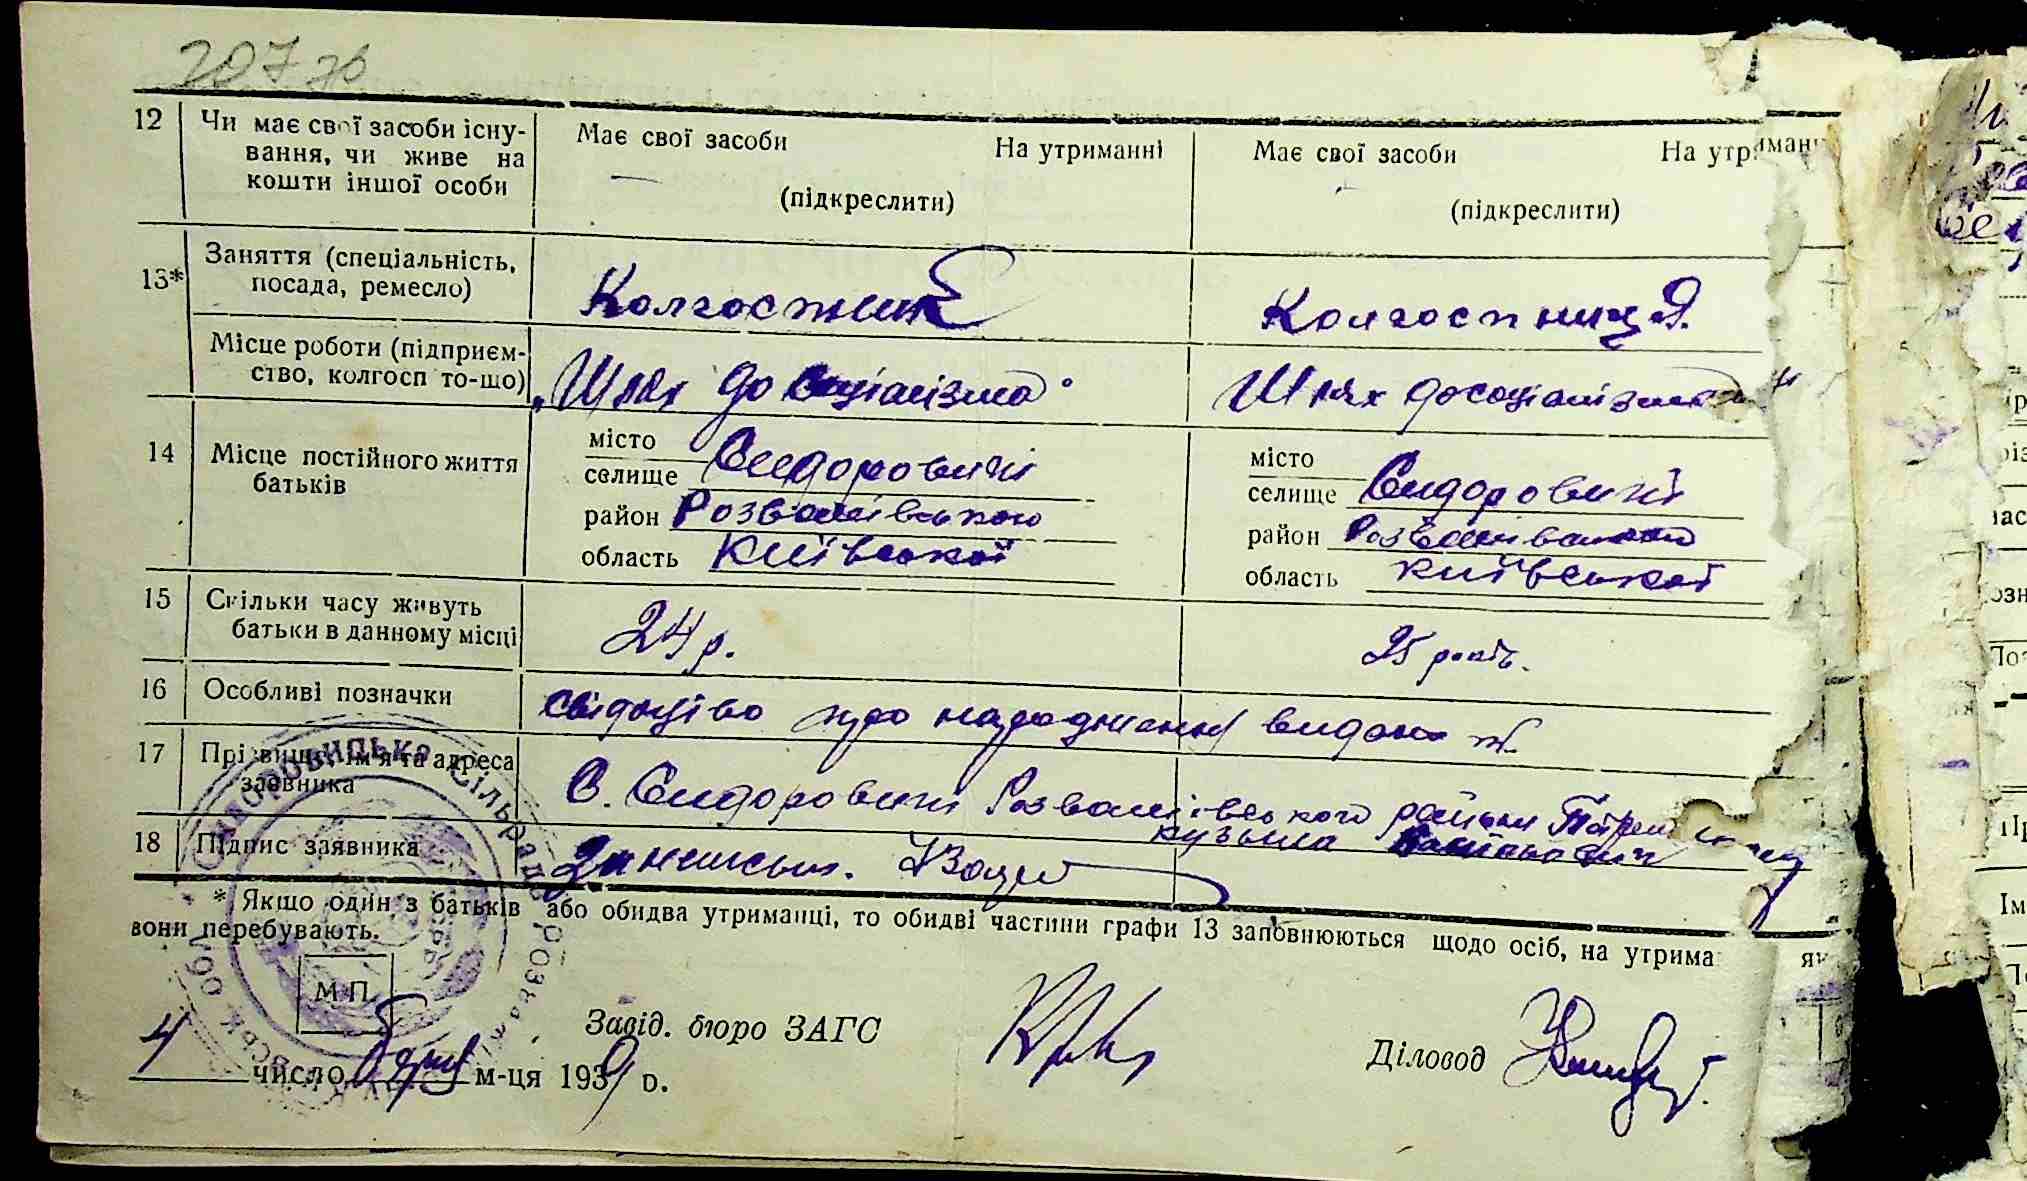 207 зв
12 Чи має свої засоби існу-
вання, чи живе на
кошти іншої особи
Має свої засоби На утриманні
(підкреслити)
Має свої засоби На утриманні
(підкреслити)
13* Заняття (спеціальність,
посада, ремесло)
Колгоспник
Колгоспниця.
Місце роботи (підприєм-
ство, колгосп то-що)
„Шлях до соціалізма"
Шлях до соціалізма"
14 Місце постійного життя
батьків
місто
селище Сидоровичі
район Розважівського
область Київської
місто
селище Сидоровичі
район Розважівського
область Київської
15 Скільки часу живуть
батьки в данному місці
24 р.
25 років.
16 Особливі позначки
свідоцтво про народження видано
17 Прізвище, ім'я та адреса
заявника
С. Сидоровичі Розважівського району
Кузьма
18 Підпис заявника
* Якщо один з батьків або обидва утриманці, то обидві частини графи 13 заповнюються щодо осіб, на утрима як
вони перебувають.
М П
Завід. бюро ЗАГС
Діловод
4 число м-ця 1939 р.
Сидоровицька сільрада Розваж